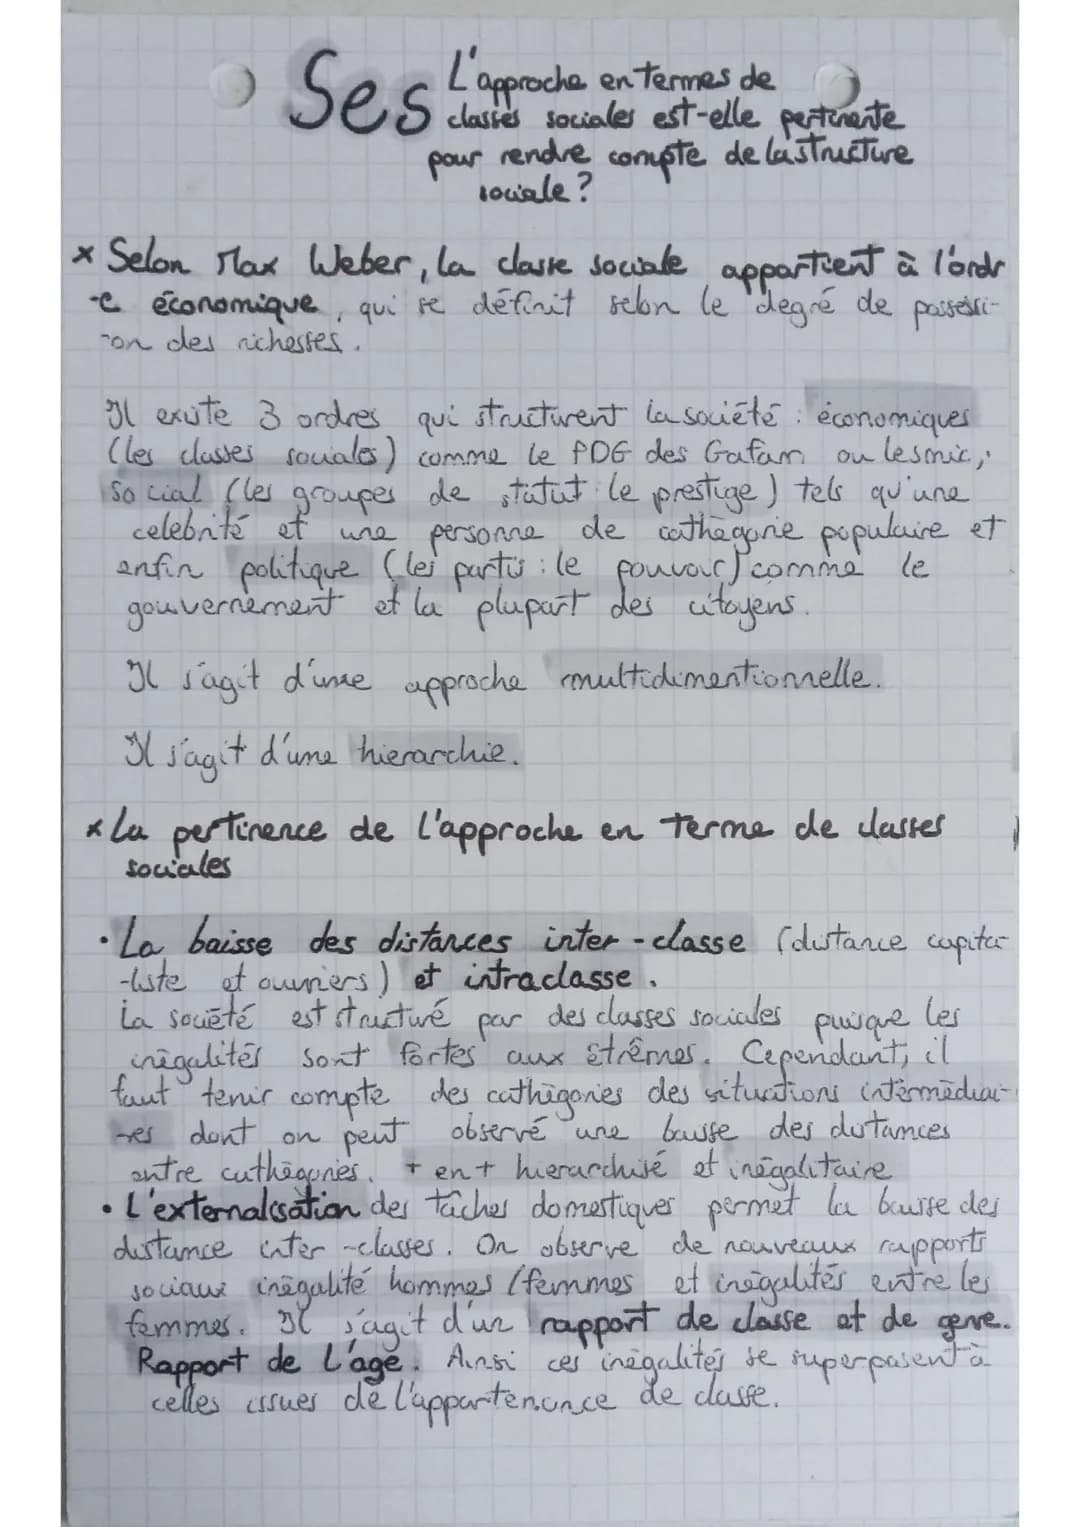 Ses L'approche en termes de
classes sociales est-elle pertinente
pour rendre compte de la structure
sociale ?
x Selon Max Weber, la classe sociale appartient à l'ordr
-e économique, qui se définit selon le degré de possessi-
-on des richesses.
Il existe 3 ordres qui structurent la société : économiques
(les classes sociales) comme le PDG des Gafam ou le smic,
social (les groupes de statut : le prestige) tels qu'une
celebrité et une personne de cathégorie populaire et
enfin politique (les partis : le pouvoir) comme le
gouvernement et la plupart des citoyens.
Il s'agit d'une approche multidimentionnelle.
Il s'agit d'une hierarchie.
x La pertinence de l'approche en terme de classes
sociales
• La baisse des distances inter-classe (distance capita-
-liste et ouvriers) et intraclasse.
La société est structuré par des classes sociales puisque les
inégalités sont fortes aux extrêmes. Cependant, il
faut tenir compte des cathégories des situations intermédiai-
-res dont on peut observé une baisse des distances
entre cathégories. + en + hierarchisé et inégalitaire
• L'externalisation des tâches domestiques permet la baisse des
distance inter-classes. On observe de nouveaux rapports
sociaux inégalité hommes/femmes et inégalités entre les
femmes. Il s'agit d'un rapport de classe et de genre.
Rapport de l'age. Ainsi ces inégalités se superposent à
celles issues de l'appartenance de classe.